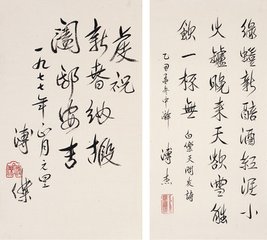 綠蟻新醅酒紅泥小
火罏晚來天欲雪能
飲一杯無 白樂天問友詩
溥杰
虔祝
新春納
闔邸安吉
一九七七年正月元旦
溥傑